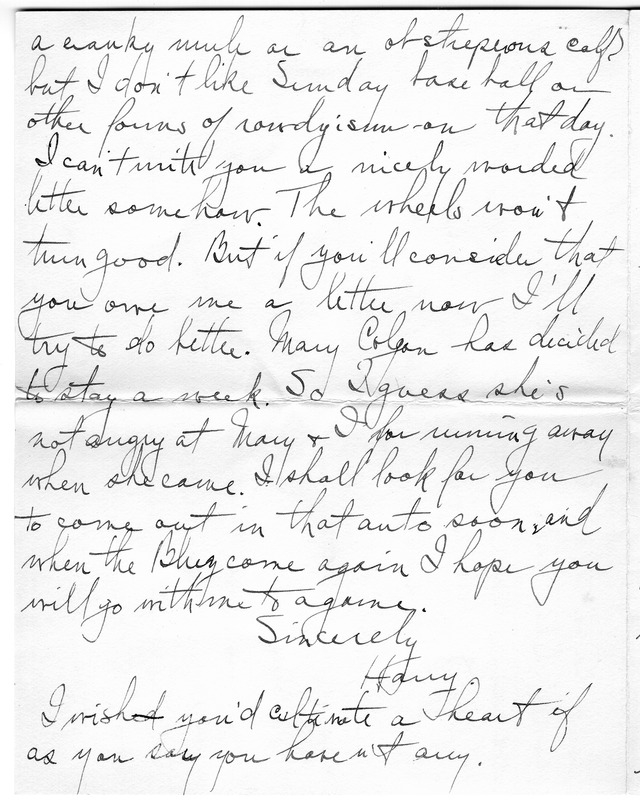 a cranky mule or an obstreperous calf?
but I don't like Sunday base ball or
other forms of rowdyism on that day.
I can't write you a nicely worded
letter somehow. The wheels won't
turn good. But if you'll consider that
you owe me a letter now I'll
try to do better. Mary Colgan has decided
to stay a week. So I guess she's
not angry at Mary & I for running away
when she came. I shall look for you
to come out in that auto soon, and
when the Blues come again I hope you
will go with me to a game.
Sincerely
Harry
I wished you'd cultivate a heart if
as you say you haven't any.